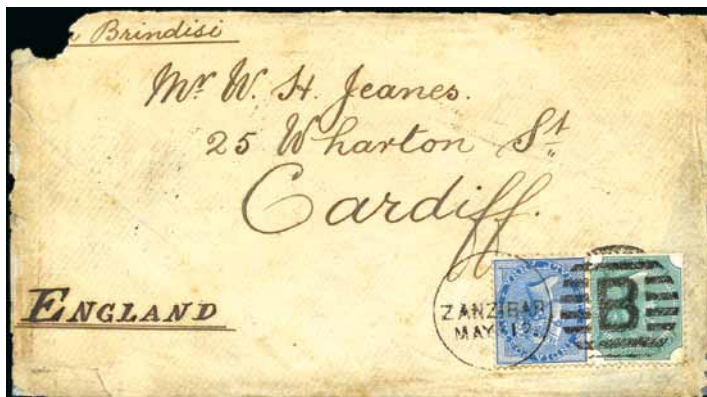 Brindisi
Mr W. H. Jeanes.
25 Wharton St
Cardiff.
ENGLAND
ZANZIBAR
MAY 12
B